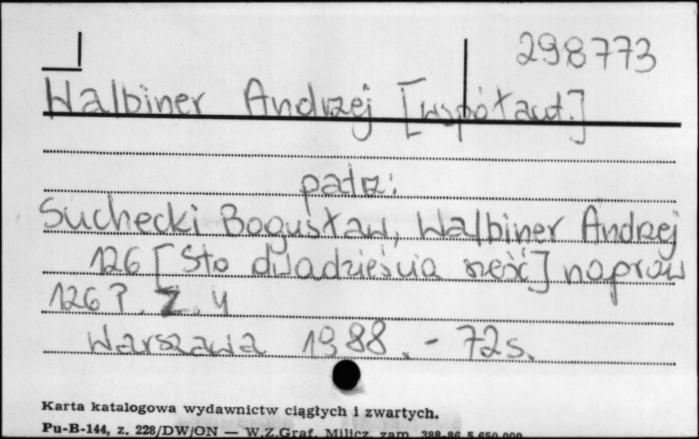 298773
Walbiner Andrzej [współaut.]
patrz:
Suchecki Bogusław, Walbiner Andrzej
126 [Sto dwadzieścia sześć] napraw
126P. Z. 4
Warszawa 1988. - 72 s.
Karta katalogowa wydawnictw ciągłych i zwartych.
Pu-B-144, z. 228/DW/ON — W.Z.Graf. Milicz, zam. 388-86 5.650.000